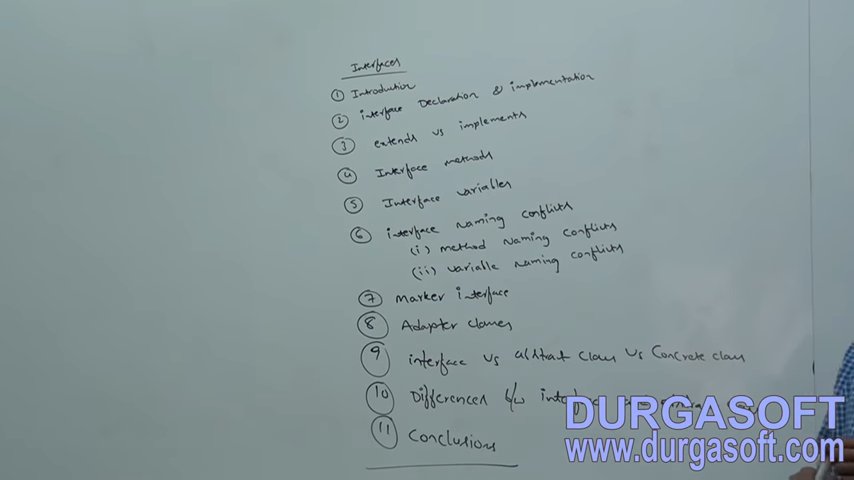 Interfaces
① Introduction
② interface Declaration & implementation
③ extends vs implements
④ Interface methods
⑤ Interface variables
⑥ interface Naming conflicts
(i) method Naming conflicts
(ii) variable Naming conflicts
⑦ Marker interface
⑧ Adapter classes
⑨ interface vs abstract class vs Concrete class
⑩ Differences b/w interface
⑪ Conclusions
DURGASOFT
www.durgasoft.com